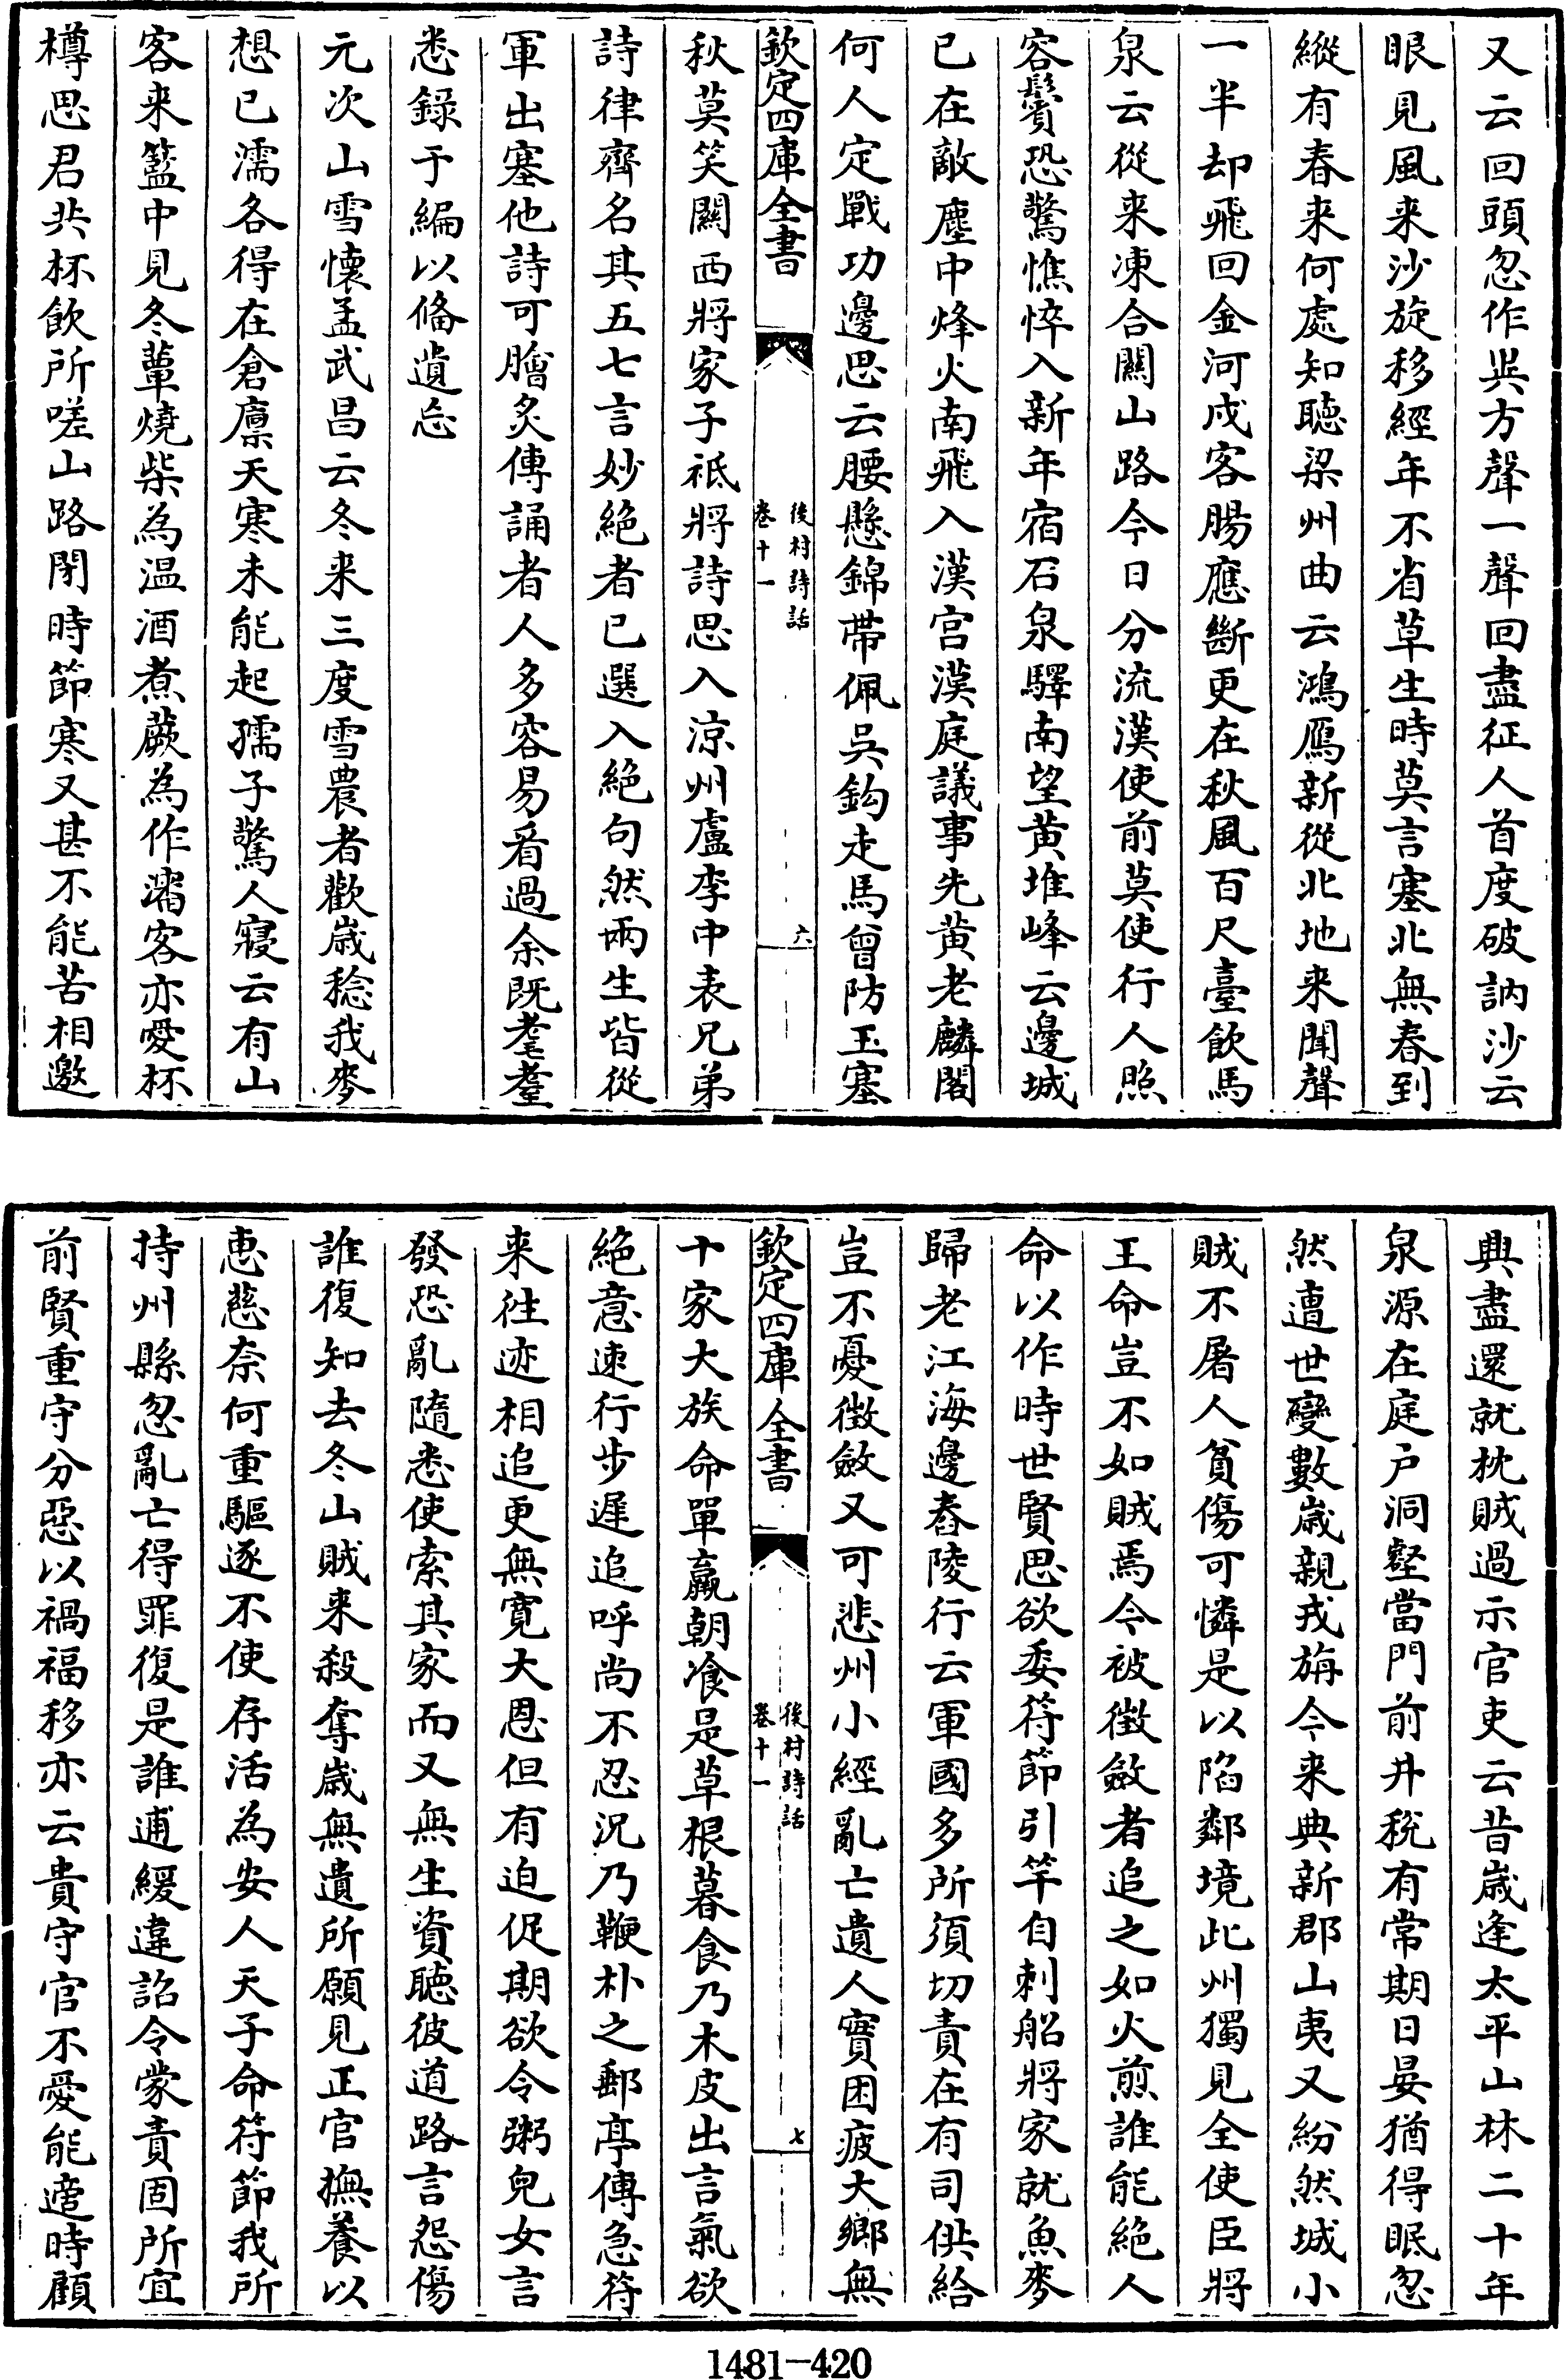 又云回頭忽作異方聲一聲回盡征人首度破訥沙云
眼見風来沙旋移經年不省草生時莫言塞北無春到
縱有春来何處知聽梁州曲云鴻鴈新從北地来聞聲
一半却飛回金河戍客腸應斷更在秋風百尺臺飲馬
泉云從来凍合關山路今日分流漢使前莫使行人照
容鬢恐驚憔悴入新年宿石泉驛南望黄堆峰云邊城
已在敵塵中烽火南飛入漢宫漢庭議事先黄老麟閣
何人定戰功邊思云腰懸錦帶佩吳鈎走馬曾防玉塞
欽定四庫全書
後村詩話
卷十一
六
秋莫笑關西將家子祗將詩思入涼州盧李中表兄弟
詩律齊名其五七言妙絶者已選入絶句然兩生皆從
軍出塞他詩可膾炙傳誦者人多容易看過余既耄耋
悉録于編以俻遺忘
元次山雪懷孟武昌云冬来三度雪農者歡歲稔我麥
想已濡各得在倉廪天寒未能起孺子驚人寢云有山
客来籃中見冬蕈燒柴為温酒煮蕨為作瀋客亦愛杯
樽思君共杯飲所嗟山路閉時節寒又甚不能苦相邀
興盡還就枕賊過示官吏云昔歲逢太平山林二十年
泉源在庭户洞壑當門前井稅有常期日晏猶得眠忽
然遭世變數歲親戎旃今来典新郡山夷又紛然城小
賊不屠人貧傷可憐是以陷鄰境此州獨見全使臣將
王命豈不如賊焉今被徴斂者追之如火煎誰能絶人
命以作時世賢思欲委符節引竿自刺船將家就魚麥
歸老江海邊舂陵行云軍國多所須切責在有司供給
豈不憂徴斂又可悲州小經亂亡遺人實困疲大鄉無
欽定四庫全書
後村詩話
卷十一
七
十家大族命單羸朝飡是草根暮食乃木皮出言氣欲
絶意速行步遲追呼尚不忍況乃鞭朴之郵亭傳急符
来往迹相追更無寛大恩但有迫促期欲令鬻兒女言
發恐亂隨悉使索其家而又無生資聽彼道路言怨傷
誰復知去冬山賊来殺奪歲無遺所願見正官撫養以
恵慈奈何重驅逐不使存活為安人天子命符節我所
持州縣忽亂亡得罪復是誰逋緩違詔令蒙責固所宜
前賢重守分惡以禍福移亦云貴守官不愛能適時顧
1481-420